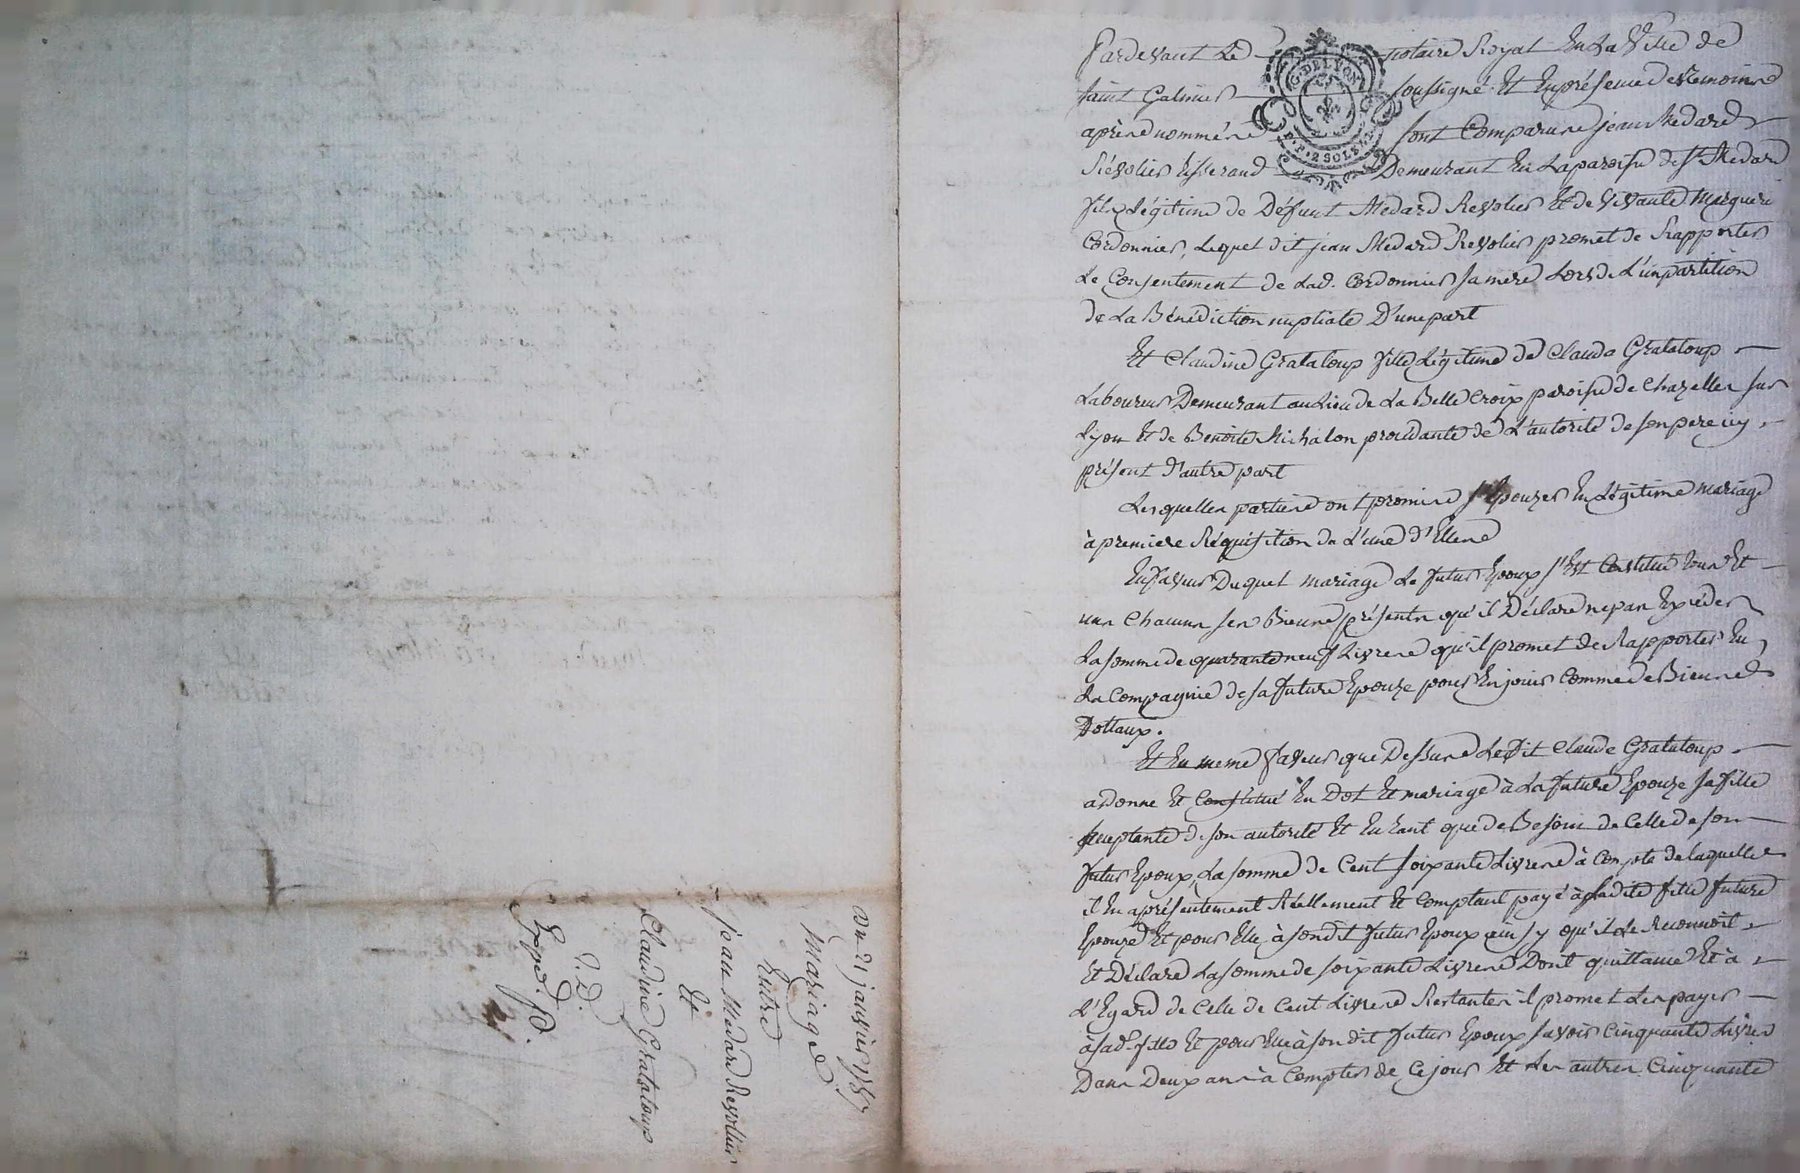 Du 21 janvier 1787
Mariage
Entre
jean Medard Revollier
Et
Claudine Grataloup
J. D.
Exped. fd.
G. DE LYON
D. P. 2 SOLS
Pardevant Le notaire Royal En La Ville de
saint Galmier soussigné Et En présence des temoins
après nommés sont Comparus jean Medard
Révolier tisserand Demeurant En La paroisse de St Medard
fils Légitime de Défunt Medard Revolier Et de Vivante Margueri
Cordonnier, Lequel dit jean Medard Revolier promet de Rapporter
Le Consentement de Lad. Cordonnier sa mere Lors de L'impartition
de La Bénédiction nuptiale D'une part
Et Claudine Grataloup fille Légitime de Claude Grataloup
Laboureur Demeurant au Lieu de La Belle Croix paroisse de Chazelles sur
Lyon Et de Benoite Michalon procedante de L'autorité de son pere icy
présent d'autre part
Lesquelles parties ont promis s'Epouzer En Légitime mariage
à premiere Réquisition de L'une d'Elles
En faveur Duquel mariage Le futur Epoux s'Est Constitué tous Et
un Chacuns ses Biens présents qu'il Déclare ne pas Excéder
La somme de quarante neuf Livres qu'il promet de Rapporter En
La Compagnie de sa future Epouze pour En jouir Comme de Biens
Dottaux.
Et En meme faveur que Dessus Ledit Claude Grataloup
a donné Et Constitué En Dot Et mariage à La future Epouze sa fille
acceptante de son autorité Et En tant que de Besoin de Celle de son
futur Epoux, La somme de Cent soixante Livres à Compte de laquelle
il En a présentement Réellement Et Comptant payé à sadite fille future
Epouze Et pour Elle à sondit futur Epoux ainsy qu'il Le Reconnoit
Et Déclare La somme de soixante Livres Dont quittance Et à
L'Egard de Celle de Cent Livres Restantes il promet Les payer
à sad. fille Et pour Elle à son dit futur Epoux savoir Cinquante Livres
Dans Deux ans à Compter de Ce jour Et Les autres Cinquante